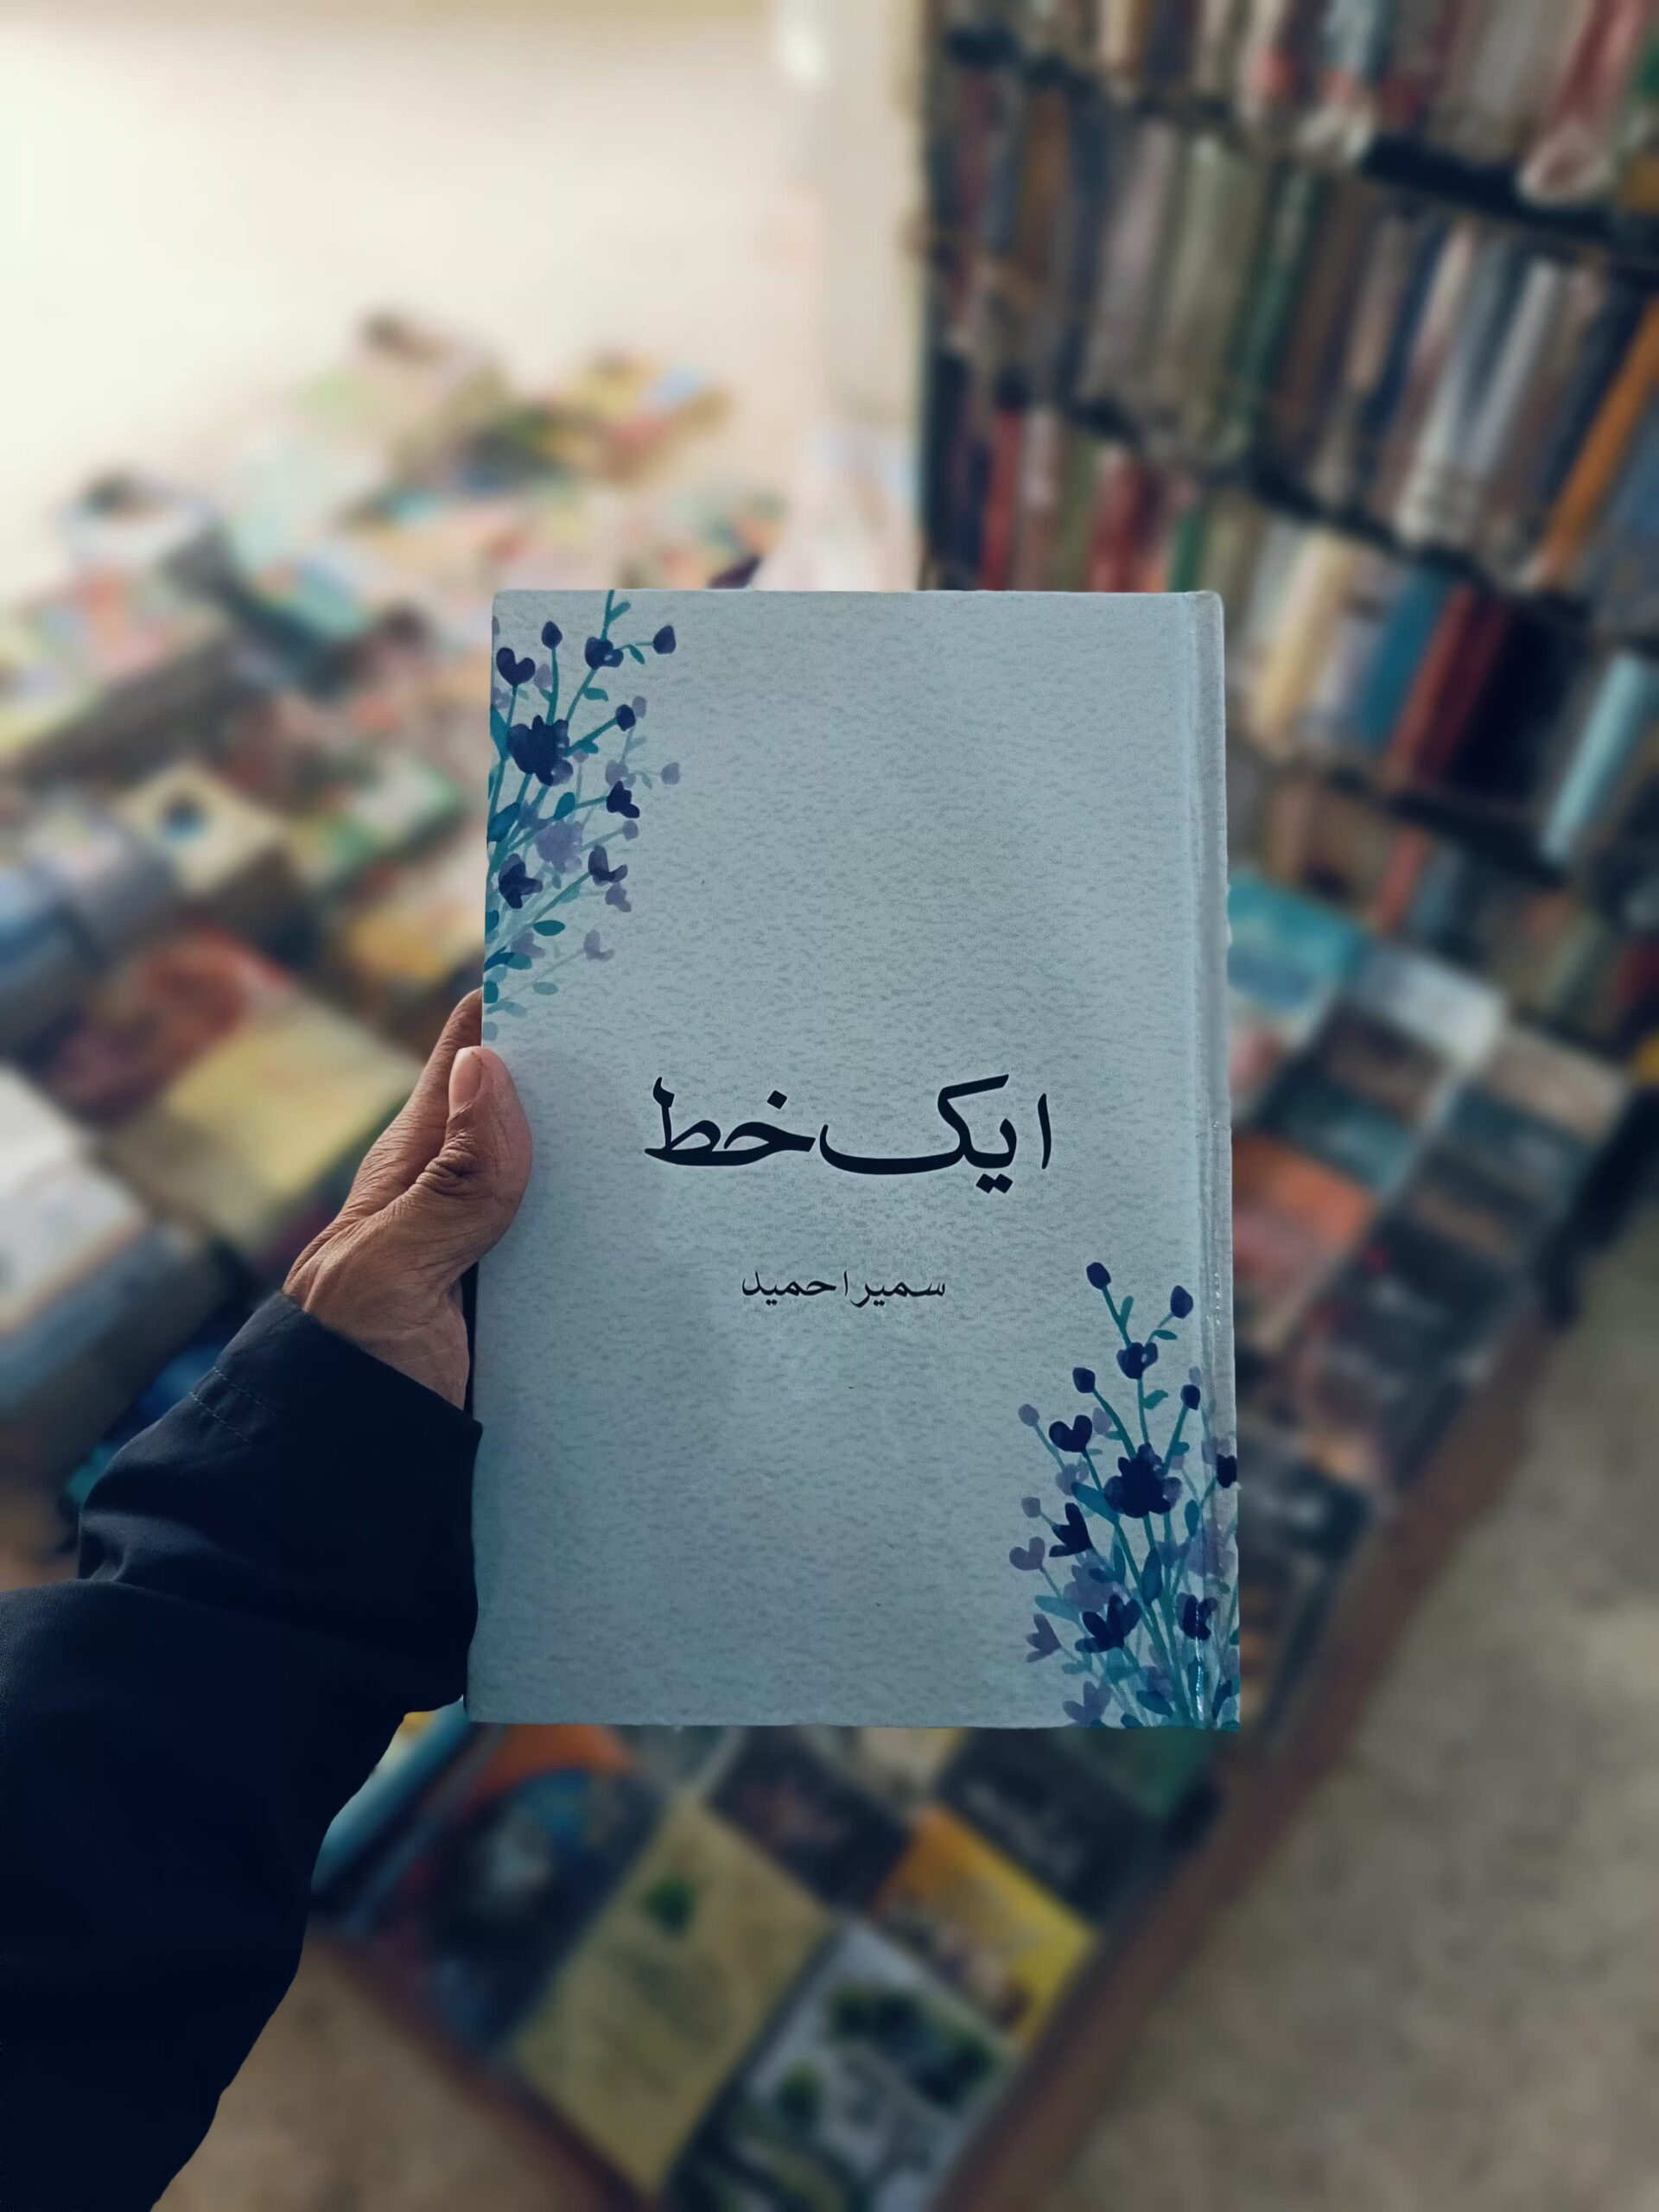 ایک خط
سمیرا حمید